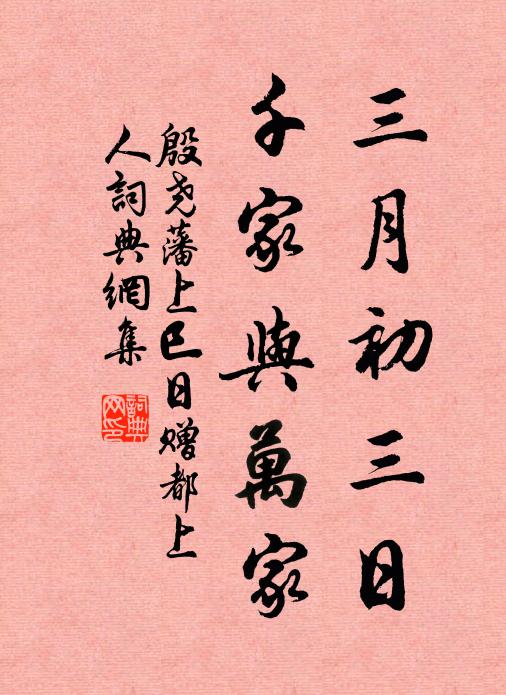 三月初三日
千家與萬家
殷尧藩上巳日赠都上
人詞典網集
詞典
网印